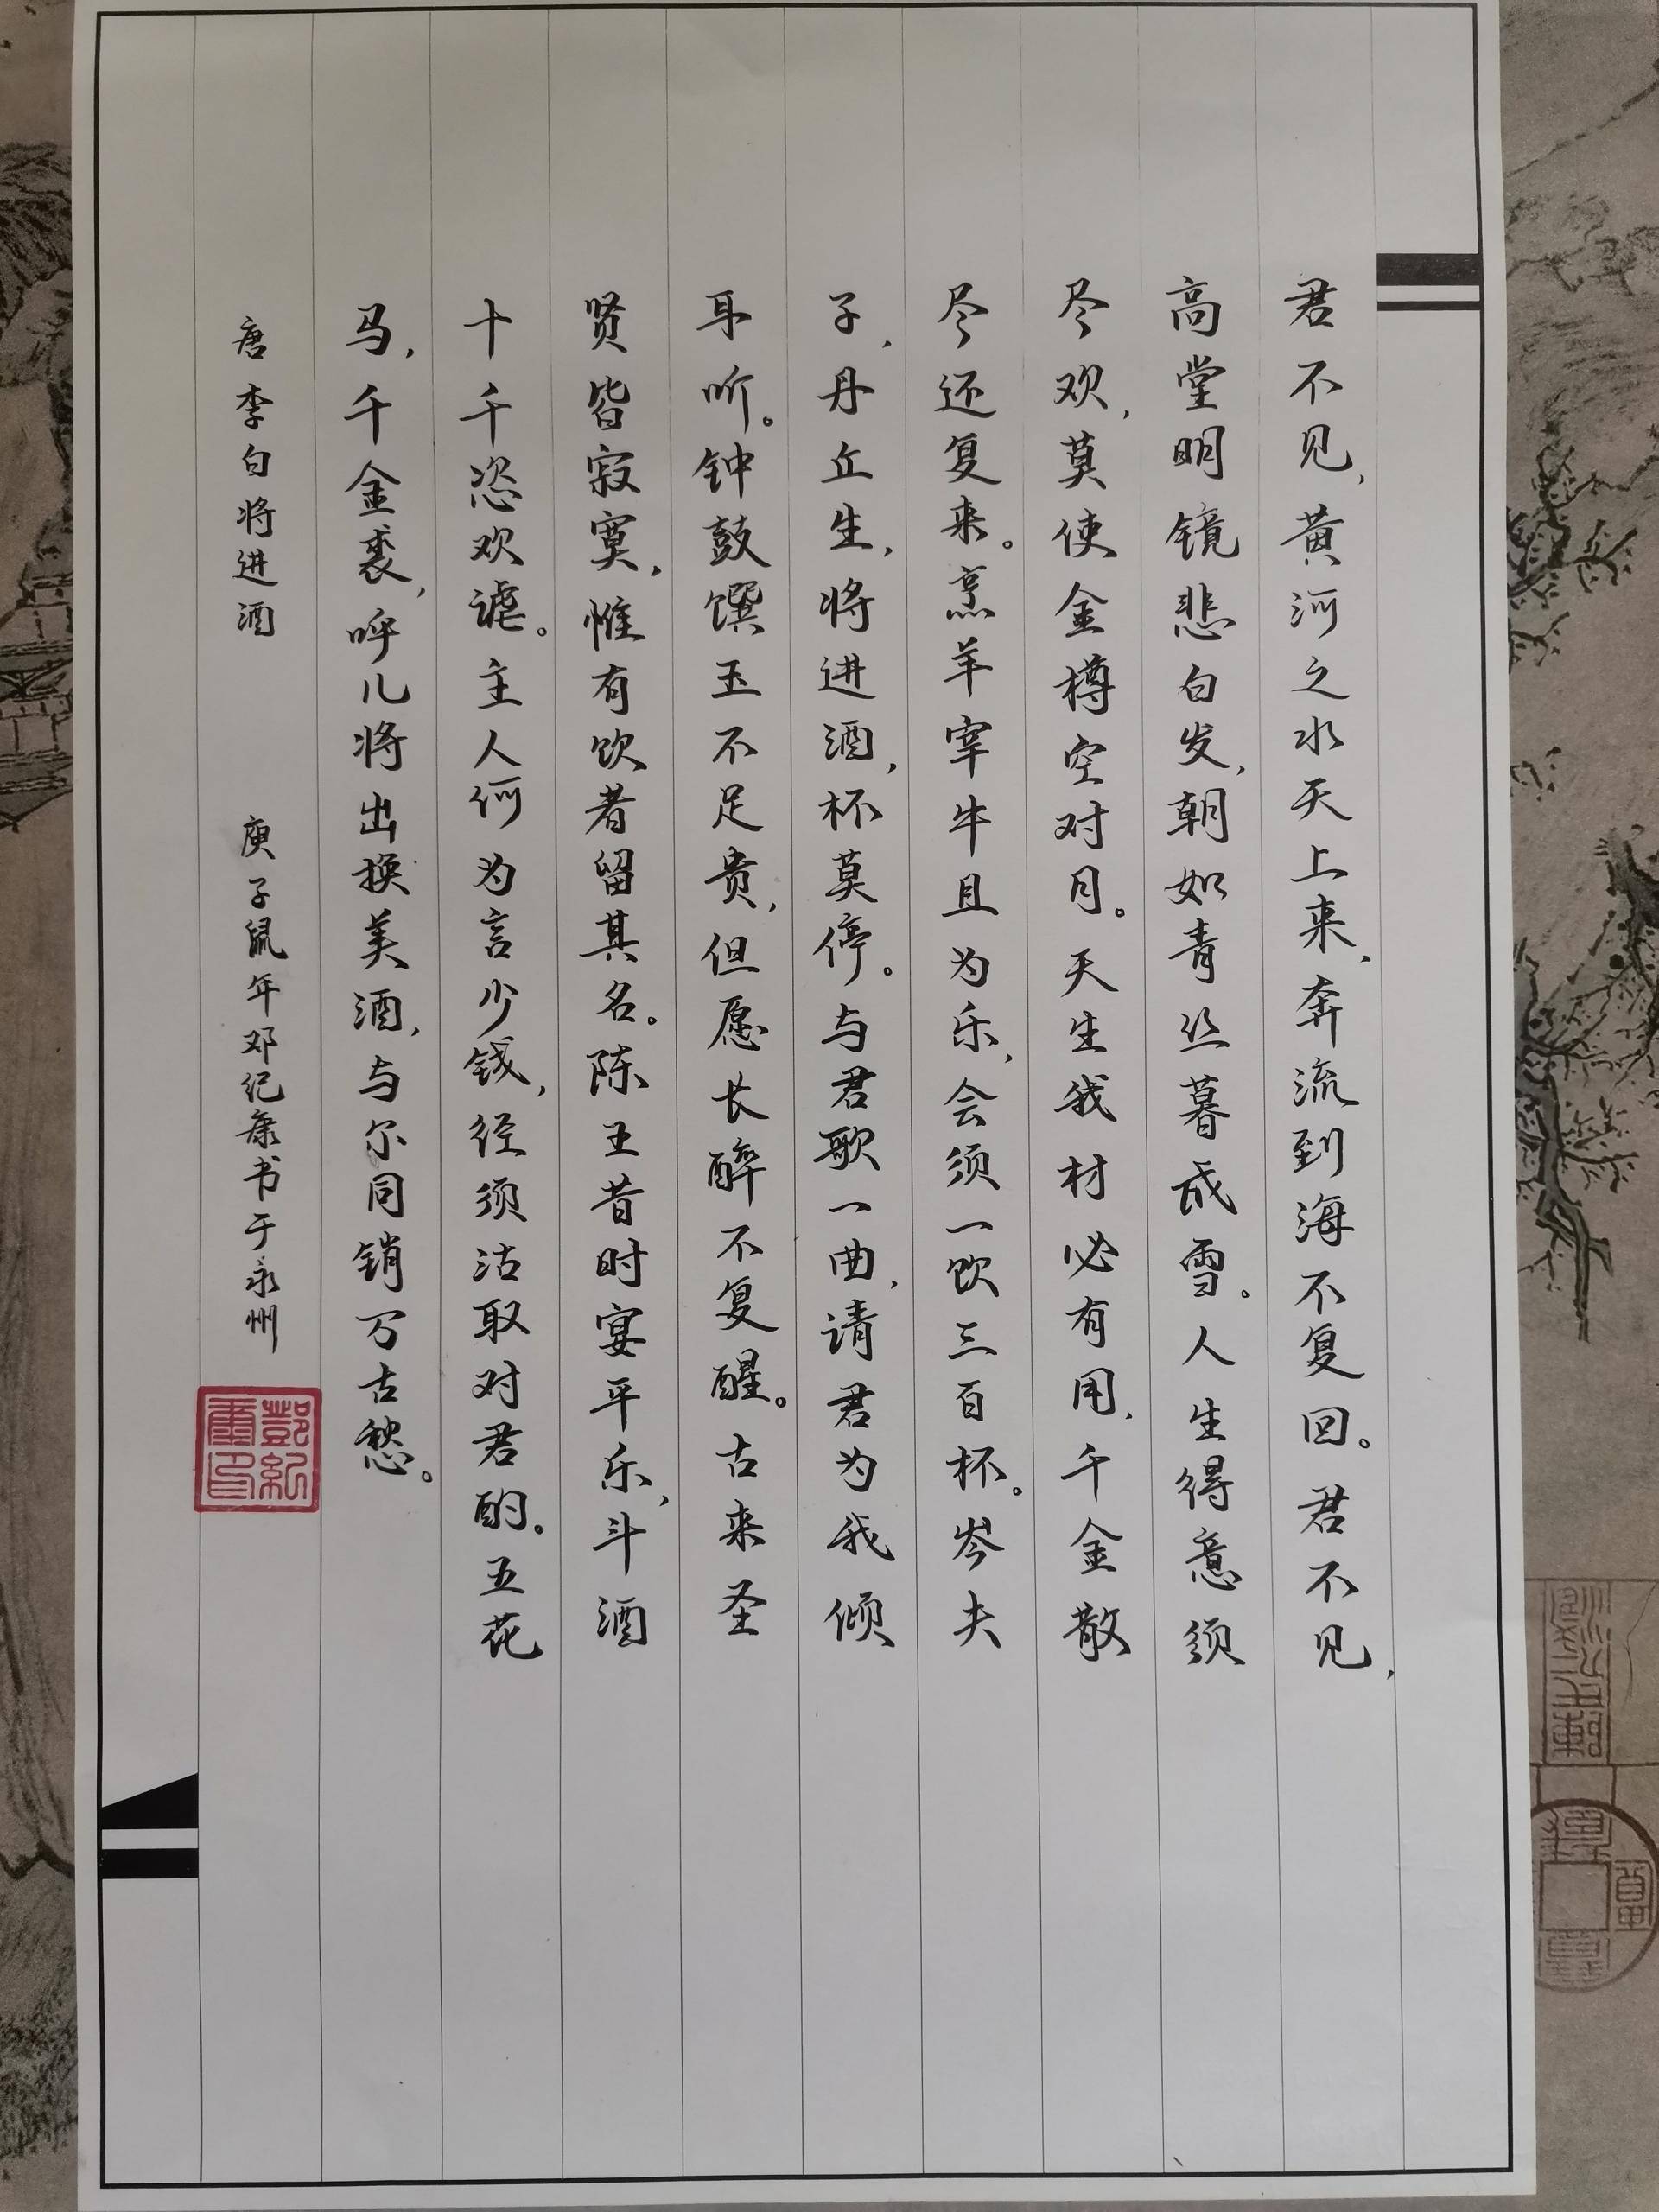 君不见，黄河之水天上来，奔流到海不复回。君不见，
高堂明镜悲白发，朝如青丝暮成雪。人生得意须
尽欢，莫使金樽空对月。天生我材必有用，千金散
尽还复来。烹羊宰牛且为乐，会须一饮三百杯。岑夫
子，丹丘生，将进酒，杯莫停。与君歌一曲，请君为我倾
耳听。钟鼓馔玉不足贵，但愿长醉不复醒。古来圣
贤皆寂寞，惟有饮者留其名。陈王昔时宴平乐，斗酒
十千恣欢谑。主人何为言少钱，径须沽取对君酌。五花
马，千金裘，呼儿将出换美酒，与尔同销万古愁。
唐李白将进酒 庚子鼠年邓纪康书于永州
鄧紀康印